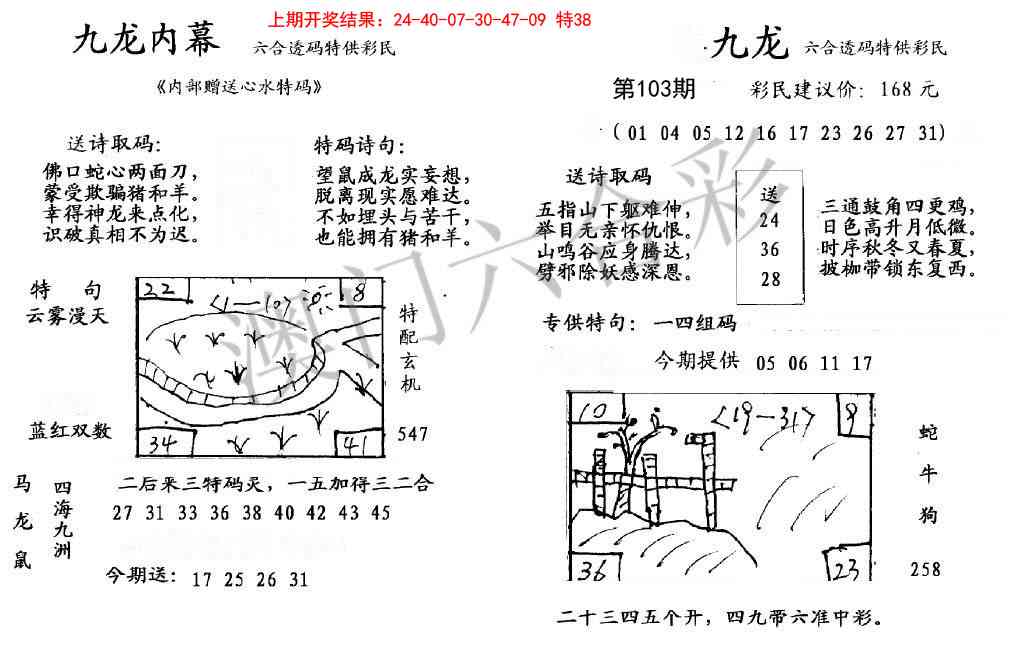 上期开奖结果：24-40-07-30-47-09 特38
九龙内幕 六合透码特供彩民
《内部赠送心水特码》
送诗取码：
佛口蛇心两面刀，
蒙受欺骗猪和羊。
幸得神龙来点化，
识破真相不为迟。
特码诗句：
望鼠成龙实妄想，
脱离现实愿难达。
不如埋头与苦干，
也能拥有猪和羊。
特 句
云雾漫天
蓝红双数
22
8
34
41
特配玄机
547
马龙鼠
四海九洲
二后来三特码灵，一五加得三二合
27 31 33 36 38 40 42 43 45
今期送：17 25 26 31
九龙 六合透码特供彩民
第103期 彩民建议价：168元
（01 04 05 12 16 17 23 26 27 31）
送诗取码
五指山下躯难伸，
举目无亲怀仇恨。
山鸣谷应身腾达，
劈邪除妖感深恩。
送
24
36
28
三通鼓角四更鸡，
日色高升月低微。
时序秋冬又春夏，
披枷带锁东复西。
专供特句：一四组码
今期提供 05 06 11 17
10
<19—31>
9
36
23
蛇
牛
狗
258
二十三四五个开，四九带六准中彩。
澳门六合彩